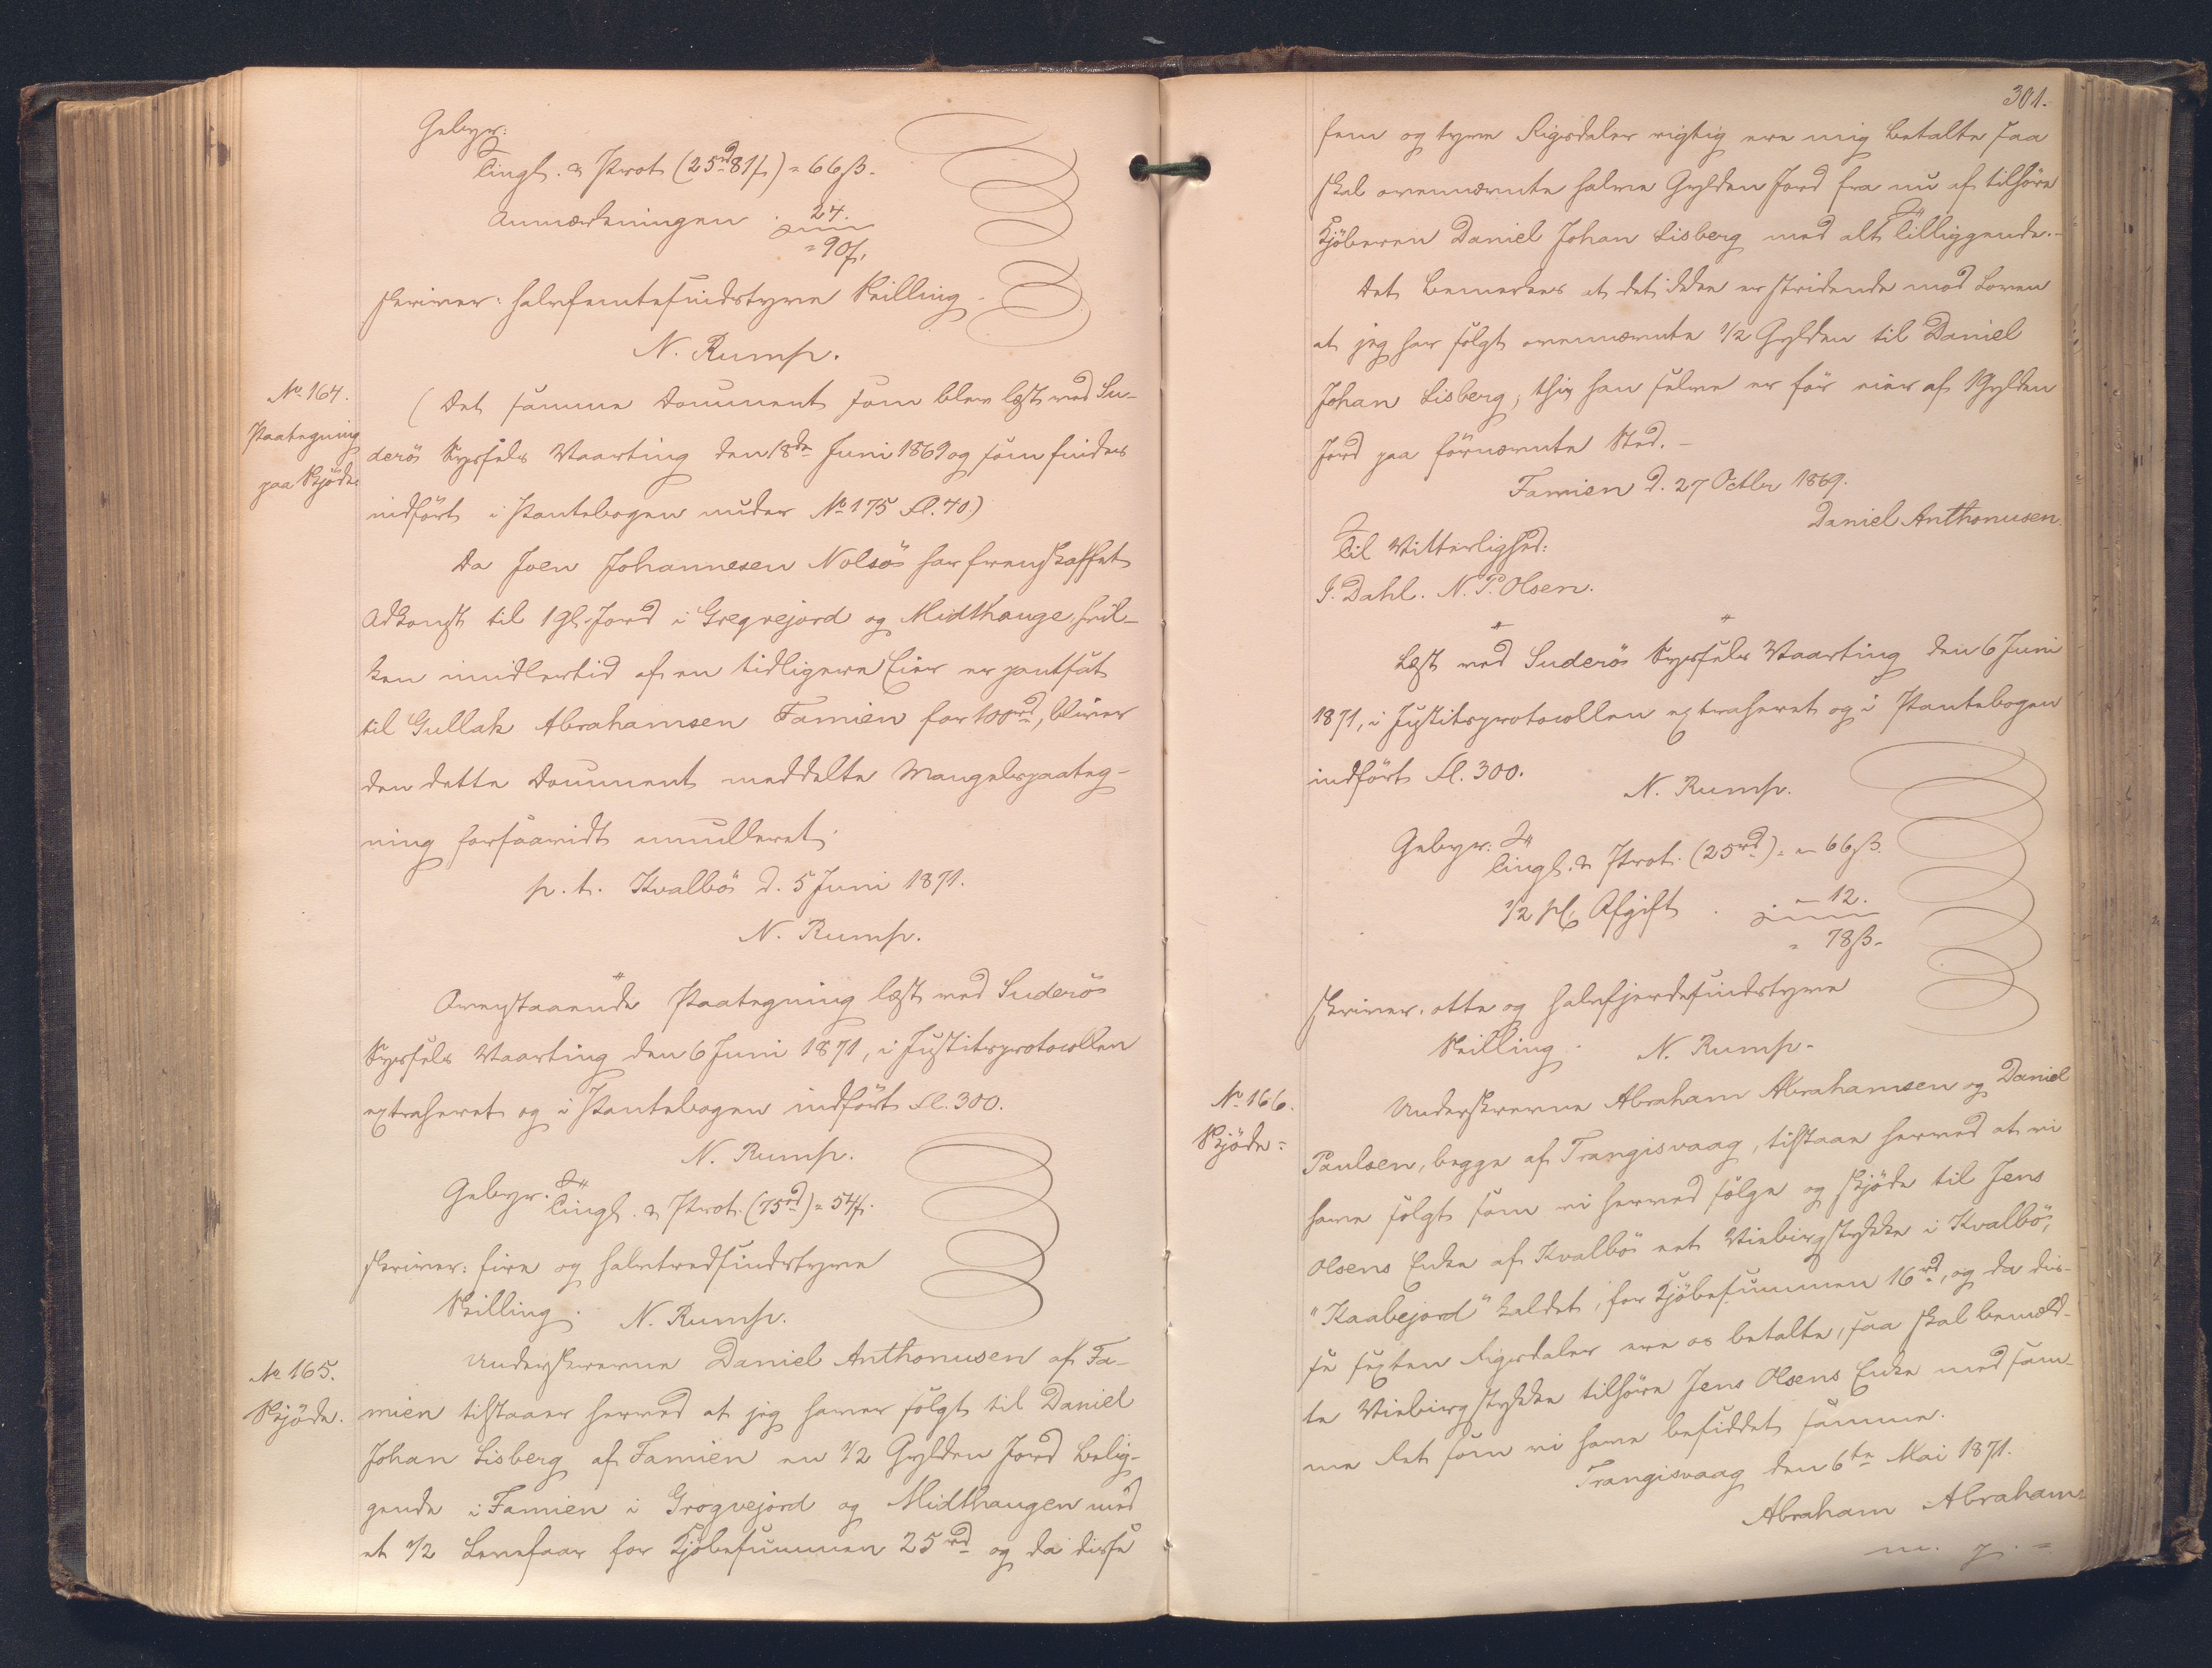 Gebyr:
Tingl. & Prot. (25rd 81s) = 66ß.
Anmærkningen . 24.
= 90s.
skriver: halvfemtesindstyve Skilling.
N. Rump.
No 164.
Paategning
paa Skjöde.
(Det samme Document som blev læst ved Su-
derös Syssels Vaarting den 18de Juni 1869 og som findes
indfört i Pantebogen under No 175 Fl. 70)
Da Joen Johannesen Nolsö har fremskaffet
Adkomst til 1 Gl. Jord i Gregvejord og Midthauge, hvil-
ken imidlertid af en tidligere Eier er pantsat
til Gullak Abrahamsen Famien for 100rd, bliver
den dette Document meddelte Mangelspaateg-
ning forsaavidt annulleret.
p. t. Kvalbö d. 5 Juni 1871.
N. Rump.
Ovenstaaende Paategning læst ved Suderös
Syssels Vaarting den 6 Juni 1871, i Justitsprotocollen
extraheret og i Pantebogen indfört Fl. 300.
N. Rump.
Gebyr. Tingl. & Prot. (75rd) = 54s.
skriver: fire og halvtredsindstyve
Skilling. N. Rump.
No 165.
Skjöde.
Underskrevne Daniel Anthonusen af Fa-
mien tilstaaer herved at jeg haver solgt til Daniel
Johan Lisberg af Famien en 1/2 Gylden Jord belig-
gende i Famien i Grogvejord og Midthaugen med
et 1/2 Lenefaar for Kjöbesummen 25rd og da disse
301.
fem og tyve Rigsdaler rigtig ere mig betalte saa
skal ovennævnte halve Gylden Jord fra nu af tilhöre
Kjöberen Daniel Johan Lisberg med alt Tilliggende.-
Det bemerkes at det ikke er stridende mod Loven
at jeg har solgt ovennævnte 1/2 Gylden til Daniel
Johan Lisberg, thi han selve er för eier af 1 Gylden
Jord paa förnævnte Sted.-
Famien d. 27 Octbr 1869.
Daniel Anthonusen.
Til Vitterlighed:
J. Dahl. N. P. Olsen.
Læst ved Suderös Syssels Vaarting den 6 Juni
1871, i Justitsprotocollen extraheret og i Pantebogen
indfört Fl. 300.
N. Rump.
Gebyr: Tingl. & Prot. (25rd) = „ 66ß.
1/2 pC. Afgift . - 12.
= 78ß.
skriver: otte og halvfjerdesindstyve
Skilling. N. Rump.
No 166.
Skjöde.
Underskrevne Abraham Abrahamsen og Daniel
Paulsen, begge af Trangisvaag, tilstaae herved at vi
have solgt som vi herved sælge og skjöde til Jens
Olsens Enke af Kvalbö et Viebirgstykke i Kvalbö,
"Kaabejord" kaldet, for Kjöbesummen 16rd, og da dis-
se sexten Rigsdaler ere os betalte, saa skal bemeld-
te Viebirgstykke tilhöre Jens Olsens Enke med sam-
me Ret som vi have besiddet samme.
Trangisvaag den 6te Mai 1871.
Abraham Abrahams
m. p.